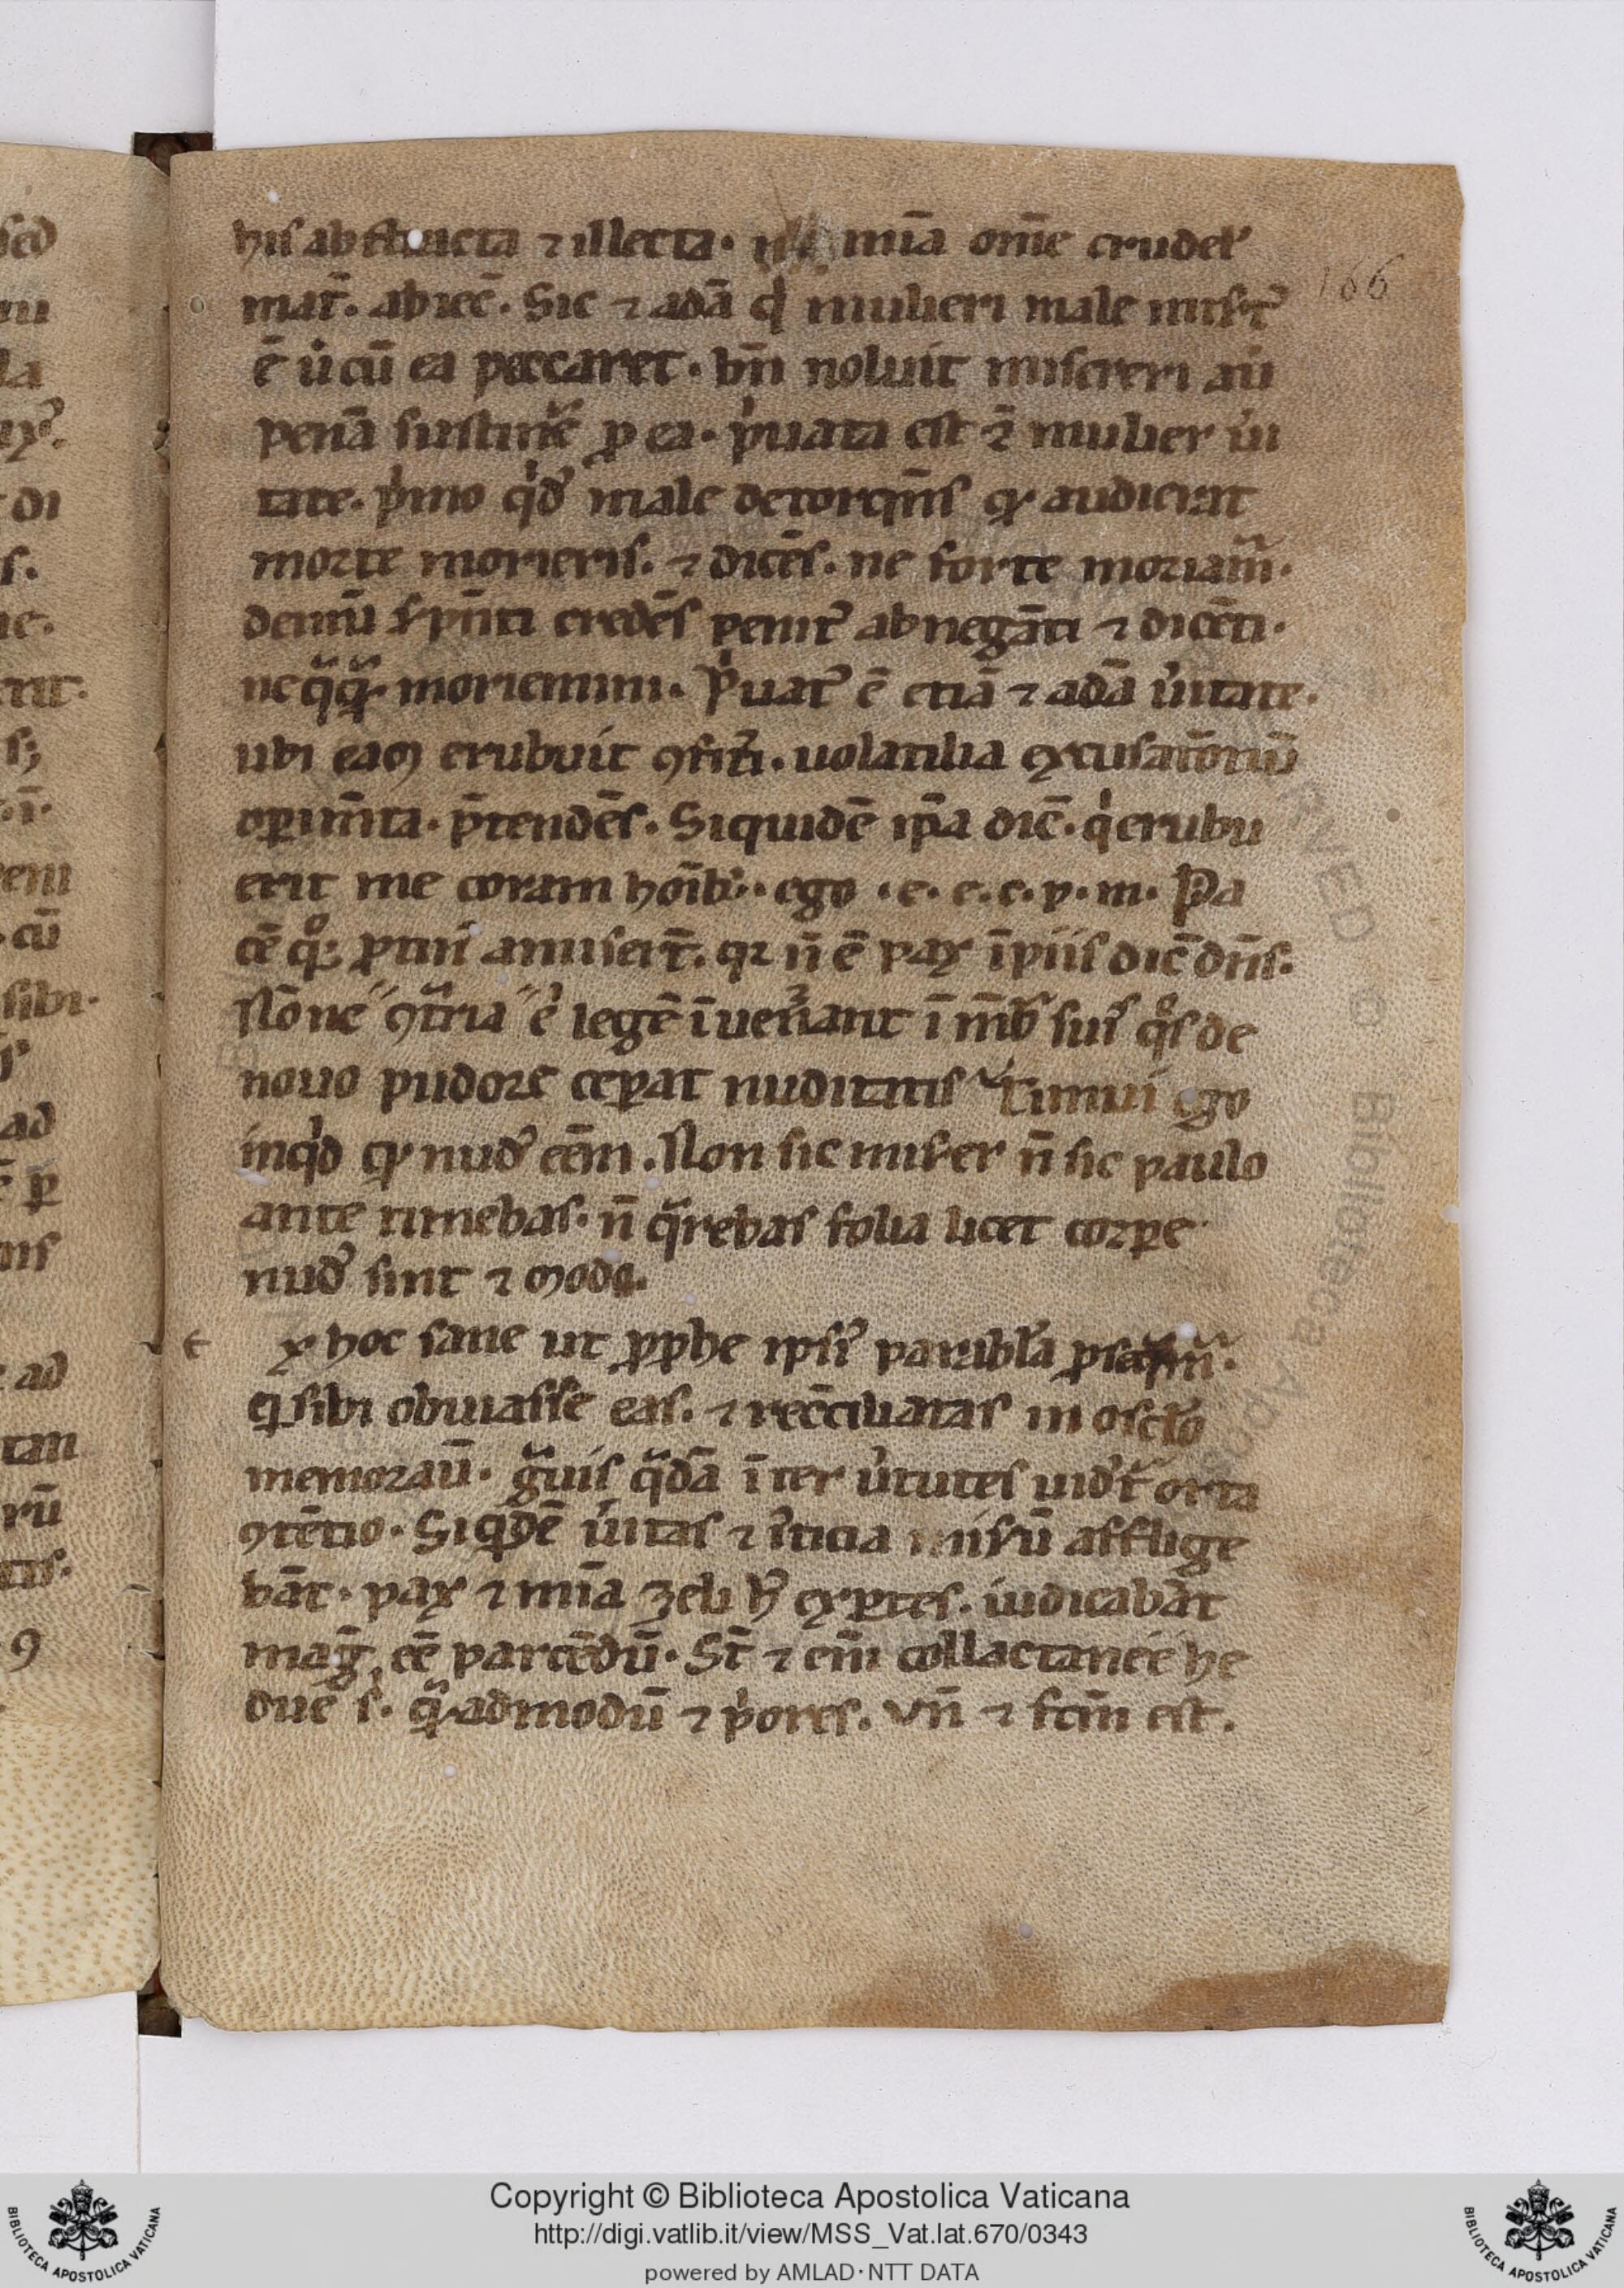 his abstracta ⁊ illecta. mīa om̄e crudel'
mat̄. abiec̄. Sic ⁊ adā q' mulieri male mis̄t'
ē ut cū ea peccaret. bn̄ noluit misereri au'
penā sustiner̄ ꝓ ea. p'uata est ⁊ mulier u'i
tate. p'mo q'd' male detorquēs qd audierat
morte morieris. ⁊ dicēs. ne forte moriam̄.
demū s'pn̄ti credēs penit' ab negāti ⁊ dicēti.
neq̄q̄ moriemini. P'uat' ē etiā ⁊ adā u'itate.
ubi eam erubuit ꝯfit'i. uolatilia excusatōnū
operim̄ta. p̄tendēs. Siquidē ip̄a dic̄. q' erubu
erit me coram hoīb'. ego .e. e. c. p. m. Pa
cē qo. ꝓtin' amiser̄t. qz n̄ ē pax īpiis dic̄ dn̄s.
Nōne ꝯt̄ria e' legē īuen'ant ī m̄b' suis q°s de
nouo pudore ceꝑat nuditatis timui ego
inq'd qd nud' eēm. Non sic miser n̄ sic paulo
ante timebas. n̄ q̄rebas folia licet corꝑe
nud' sint ⁊ modo.
x hoc sane ut ꝓphe ipsi' parabl'a
qi sibi obuiasse eas. ⁊ recc̄iliatas in oscl'o
memorau'. ḡuis q̄dā īter u'tutes uid't' orta
ꝯtētio. Siqdē u'itas ⁊ i'ticia mis'ū afflige
bāt. pax ⁊ mīa zeli h' exꝑtes. iudicabāt
mag̃ eē parcēdū. St̄ ⁊ eīm collactanee he
due s'. q̄admodū ⁊ p'ores. Vn̄ ⁊ fc̄m est.
166
sed
la
di
cū
sibi.
ad
ad
rū
Copyright © Biblioteca Apostolica Vaticana
http://digi.vatlib.it/view/MSS_Vat.lat.670/0343
powered by AMLAD·NTT DATA
BIBLIOTECA APOSTOLICA VATICANA
BIBLIOTECA APOSTOLICA VATICANA